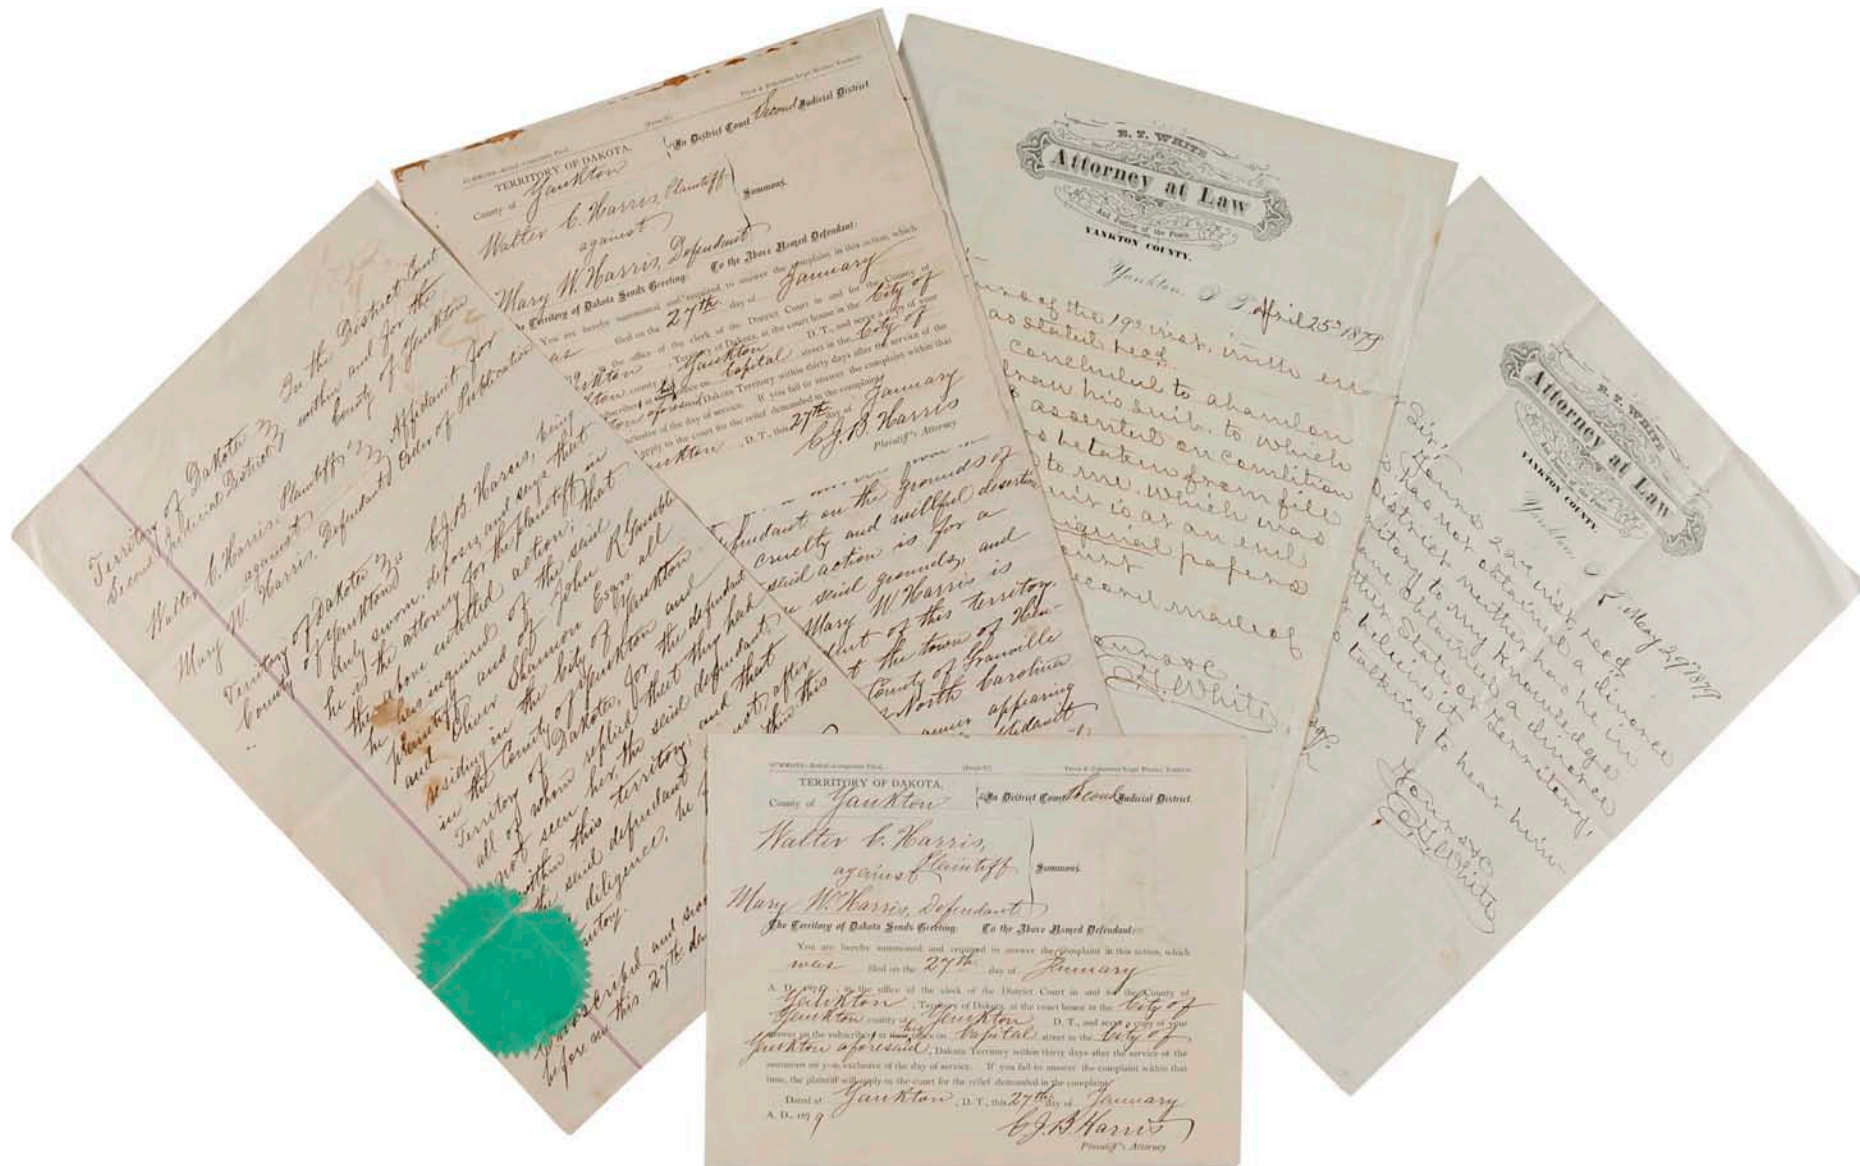 Territory of Dakota
Second Judicial District
In the District Court
within and for the
County of Yankton
Walter C. Harris, Plaintiff
against
Mary W. Harris, Defendant
Affidavit for
Order of Publication
Territory of Dakota
County of Yankton
C. J. B. Harris, being
duly sworn, deposes and says that
he is the attorney for the plaintiff in
the above entitled action; that
he has inquired of the said
plaintiff and of John R. Gamble
and Oliver Shannon Esqrs all
residing in the City of Yankton
in the County of Yankton and
Territory of Dakota, for the defendant
all of whom replied that they had
not seen her, the said defendant,
within this territory; and that
the said defendant
diligence, he
Subscribed and
before me this 27th
TERRITORY OF DAKOTA,
County of Yankton
In District Court Second Judicial District
Walter C. Harris, Plaintiff
against
Summons.
Mary W. Harris, Defendant
The Territory of Dakota Sends Greeting: To the Above Named Defendant:
You are hereby summoned and required to answer the complaint in this action, which
was filed on the 27th day of January
the office of the clerk of the District Court in and for the County of
Yankton, Territory of Dakota, at the court house in the City of
county of Yankton D. T., and serve a copy of your
Capital street in the City of
aforesaid, Dakota Territory within thirty days after the service of the
exclusive of the day of service. If you fail to answer the complaint within that
apply to the court for the relief demanded in the complaint
Yankton, D. T., this 27th day of January
C. J. B. Harris
Plaintiff's Attorney
defendant on the grounds of
cruelty and willful desertion
said action is for a
said grounds, and
Mary W Harris is
of this territory
the town of
County of Granville
North Carolina
appearing
E. T. WHITE
Attorney at Law
And Justice of the Peace.
YANKTON COUNTY.
Yankton, D. T. April 25 1879
of the 19 inst,
as stated
concluded to abandon
his suit, to which
assented on condition
be taken from file
to me, which was
suit is at an end
original papers
record made of
White
E. T. WHITE
Attorney at Law
And Justice of the Peace
YANKTON COUNTY.
Yankton D
T. May 29 1879
Sir:
Yours 22 inst, recd
has not obtained a divorce
District neither has he in
to my knowledge
obtained a divorce
State or Territory,
believe it
talking to hear him
White
TERRITORY OF DAKOTA,
County of Yankton
In District Court Second Judicial District.
Walter C. Harris,
against Plaintiff
Summons.
Mary W. Harris, Defendant
The Territory of Dakota Sends Greeting: To the Above Named Defendant:
You are hereby summoned and required to answer the complaint in this action, which
was filed on the 27th day of January
A. D., 1879, in the office of the clerk of the District Court in and for the County of
Yankton, Territory of Dakota, at the court house in the City of
Yankton county of Yankton D. T., and serve a copy of your
answer on the subscriber, at his office on Capital street in the City of
Yankton aforesaid, Dakota Territory within thirty days after the service of the
summons on you, exclusive of the day of service. If you fail to answer the complaint within that
time, the plaintiff will apply to the court for the relief demanded in the complaint
Dated at Yankton, D. T., this 27th day of January
A. D., 1879
C. J. B Harris
Plaintiff's Attorney